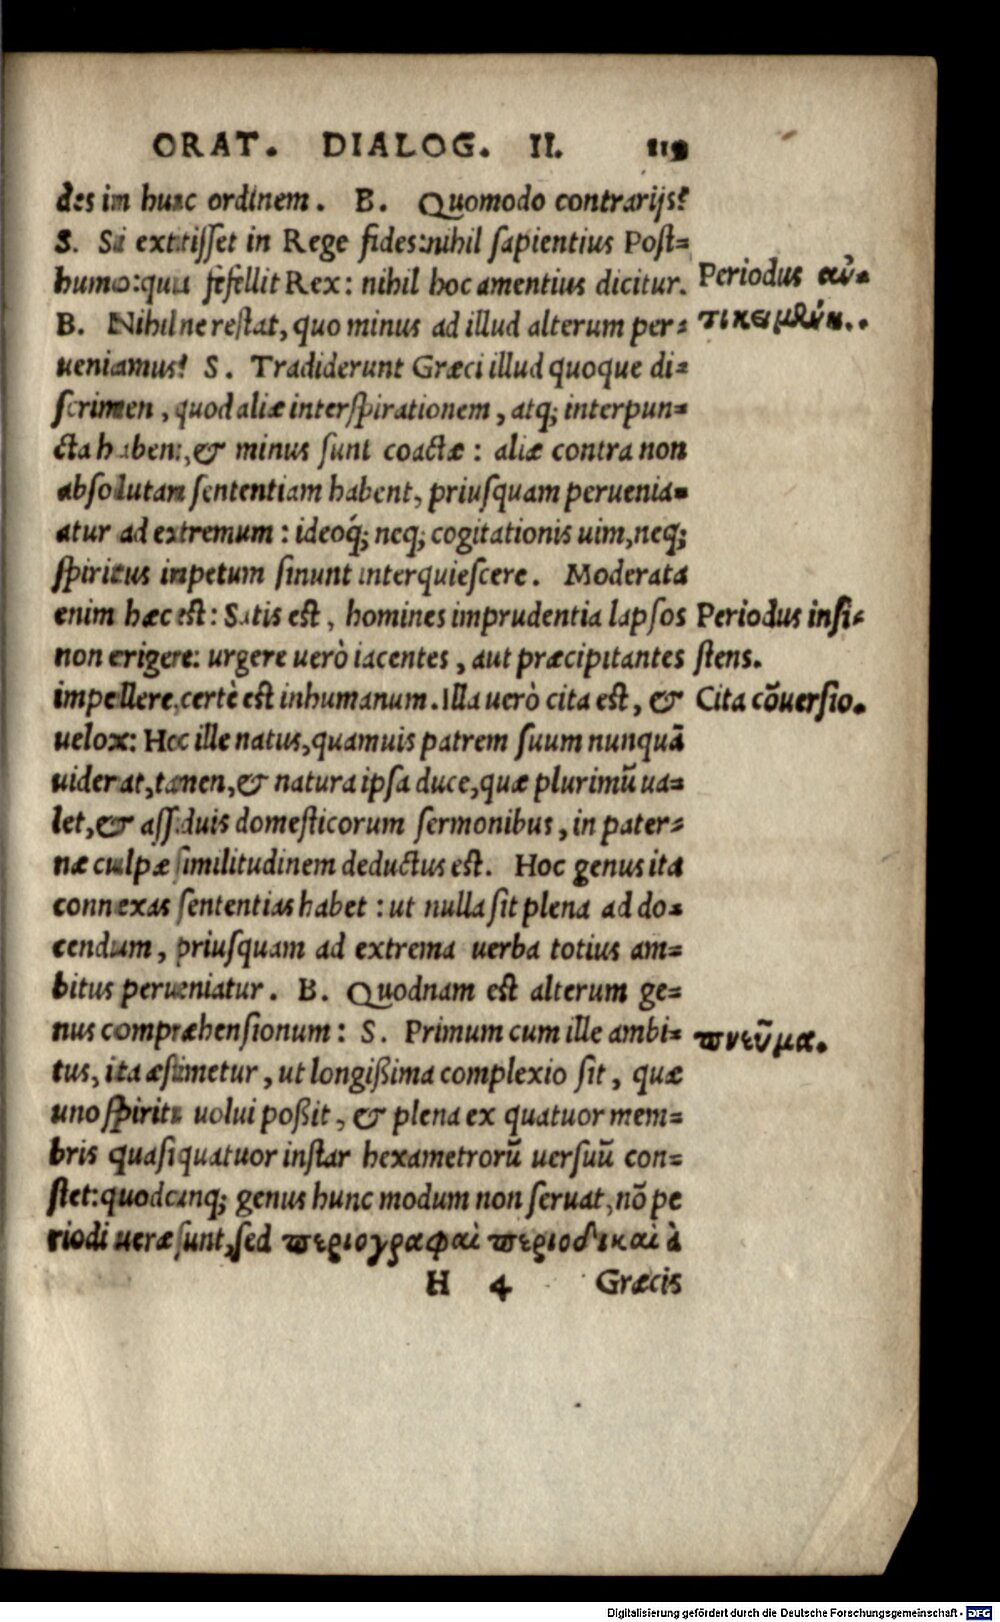 ORAT. DIALOG. II. 119
des in hunc ordinem. B. Quomodo contrarijs?
S. Si extitisset in Rege fides: nihil sapientius Post=
humo: qua fefellit Rex: nihil hoc amentius dicitur.
Periodus ἀν-
τικειμένη..
B. Nihilne restat, quo minus ad illud alterum per=
ueniamus? S. Tradiderunt Græci illud quoque di=
scrimen, quod aliæ interspirationem, atq; interpun=
cta habent, & minus sunt coactæ: aliæ contra non
absolutam sententiam habent, priusquam perueni a=
atur ad extremum: ideoq́; neq; cogitationis uim, neq;
spiritus impetum sinunt interquiescere. Moderata
enim hæc est: Satis est, homines imprudentia lapsos
non erigere: urgere uerò iacentes, aut præcipitantes
Periodus insi-
stens.
impellere, certè est inhumanum. Illa uerò cita est, &
Cita cōuersio.
uelox: Hoc ille natus, quamuis patrem suum nunquā
uiderat, tamen, & natura ipsa duce, quæ plurimū ua=
let, & assiduis domesticorum sermonibus, in pater=
næ culpæ similitudinem deductus est. Hoc genus ita
connexas sententias habet: ut nulla sit plena ad do=
cendum, priusquam ad extrema uerba totius am=
bitus perueniatur. B. Quodnam est alterum ge=
nus compræhensionum: S. Primum cum ille ambi=
πνεῦμα.
tus, ita æstimetur, ut longißima complexio sit, quæ
uno spiritu uolui poßit, & plena ex quatuor mem=
bris quasi quatuor instar hexametrorū uersuū con=
stet: quodcunq; genus hunc modum non seruat, nō pe
riodi ueræ sunt, sed περιογραφαὶ περιοδικαὶ à
H 4 Græcis
Digitalisierung gefördert durch die Deutsche Forschungsgemeinschaft - DFG